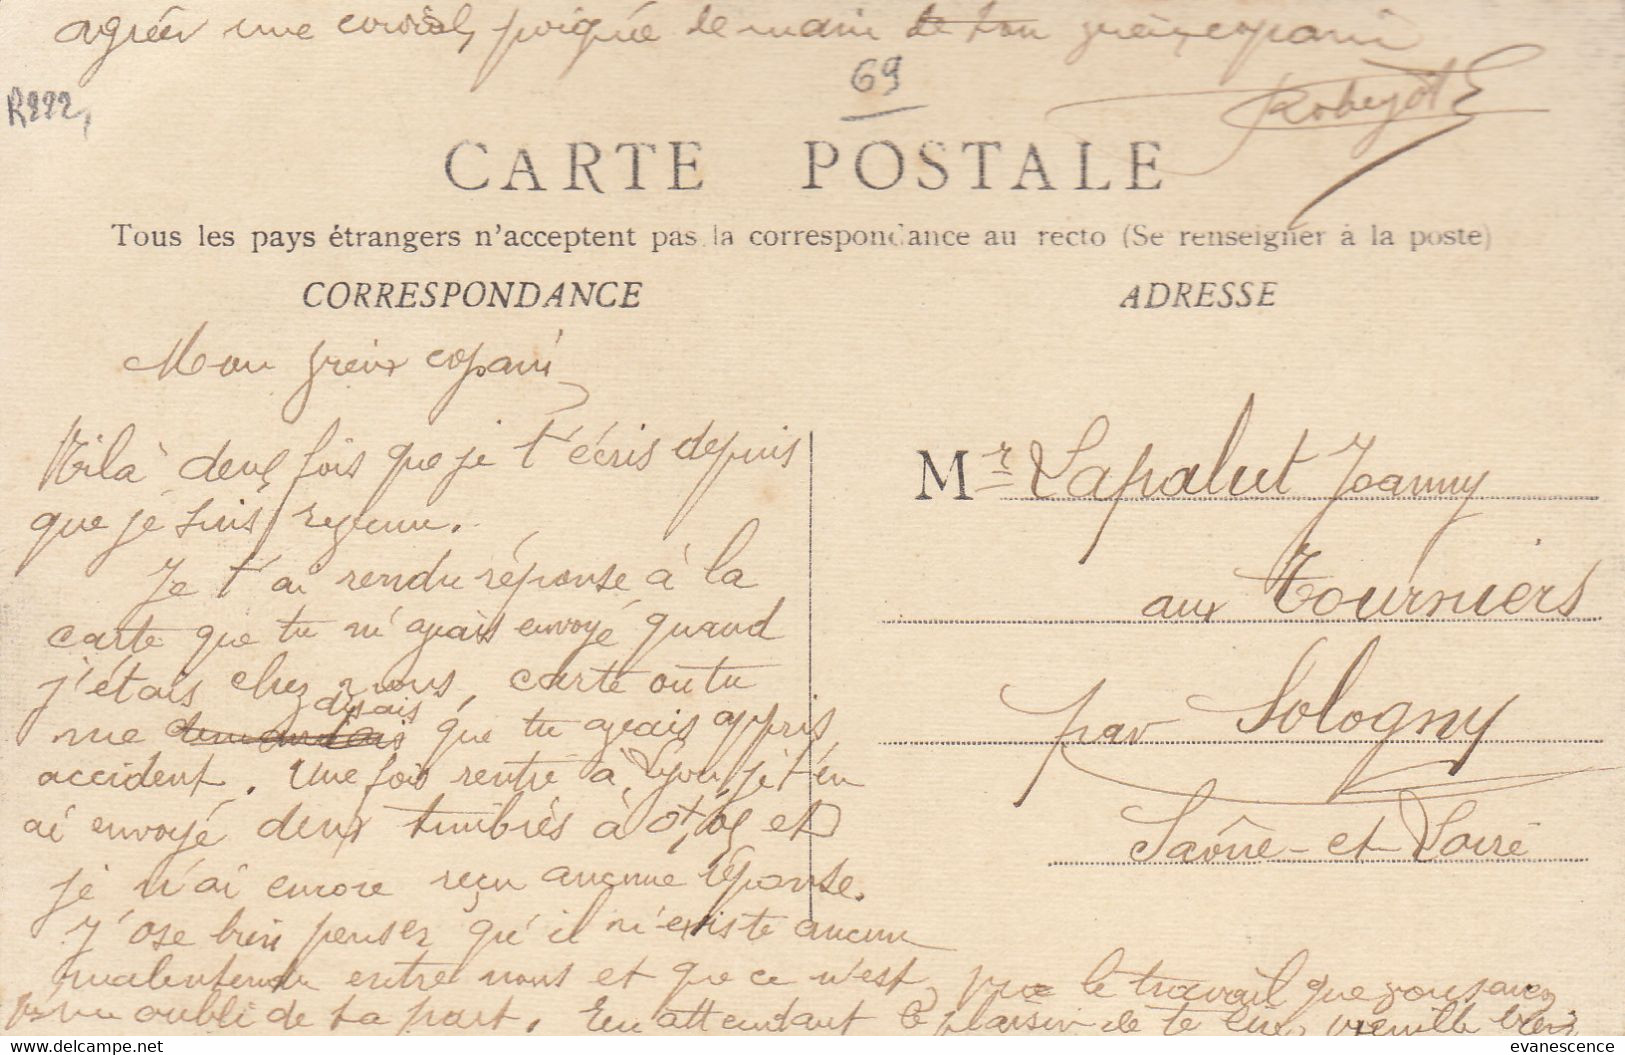 agréer une cordial, poignée de main de ton vieux copain
69
R222,
Robejot
CARTE POSTALE
Tous les pays étrangers n'acceptent pas la correspondance au recto (Se renseigner à la poste)
CORRESPONDANCE
ADRESSE
Mon vieux copain,
Vilà deux fois que je t'écris depuis
que je suis revenu.
Je t'ai rendu réponse à la
carte que tu m'avais envoyé quand
j'étais chez nous, carte ou tu
me demandais disais que tu avais appris
accident. Une fois rentré à Lyon, je t'en
ai envoyé deux timbrés à 0f,05 et
je n'ai encore reçu aucune réponse.
J'ose bien penser qu'il n'existe aucun
malentendu entre nous et que ce n'est, que le travail que vous avez
oubli de ta part. En attendant le plaisir de te lire, veuille bien
Mr Lapalut Joanny
aux Tourniers
par Sologny
Saône-et-Loire
evanescence